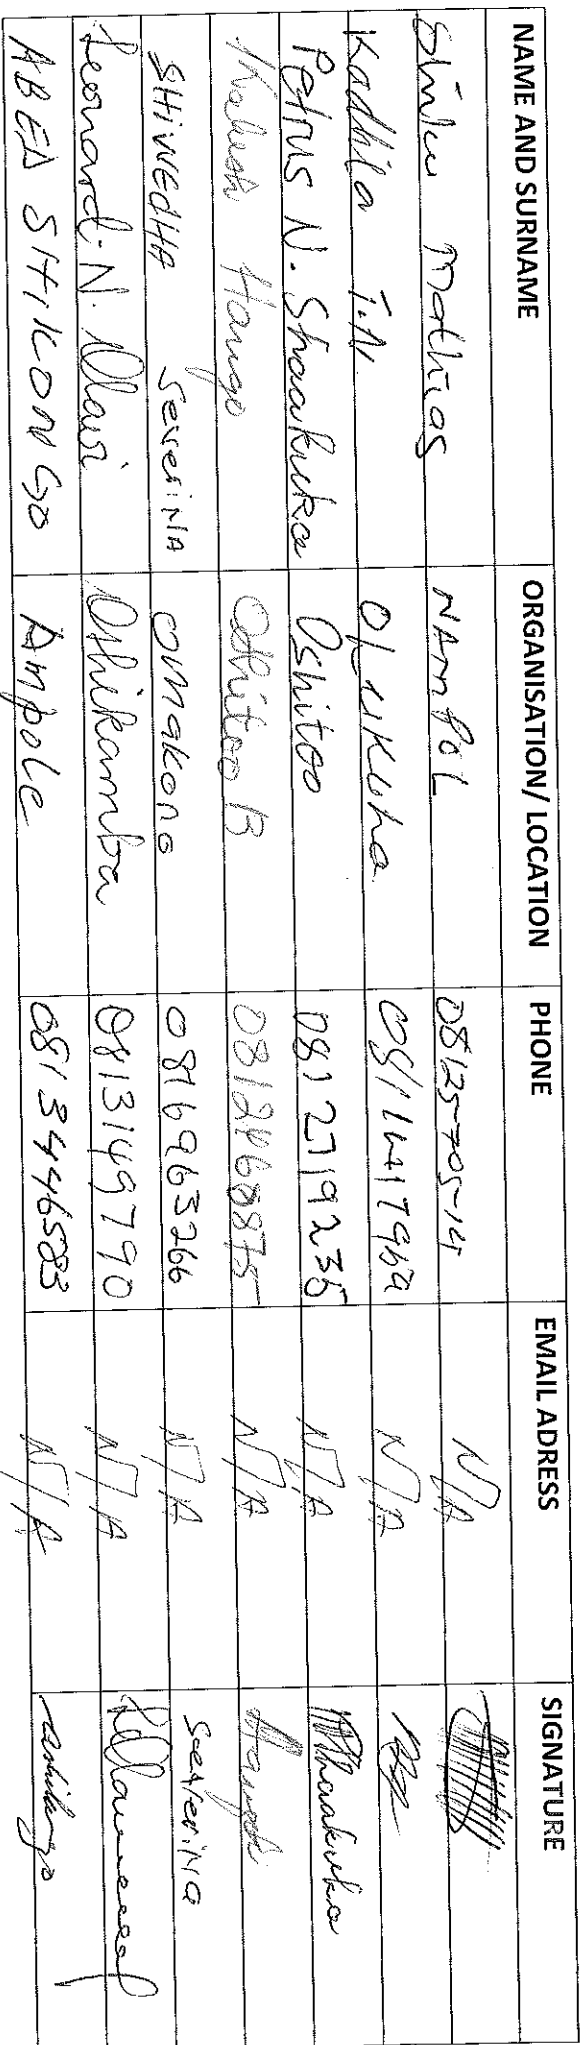 NAME AND SURNAME ORGANISATION/ LOCATION PHONE EMAIL ADRESS SIGNATURE
Mathias NAMPOL N/A
Kadhila T.N. Olukuha N/A
Petrus N. Shaakuka Oshitoo 0812719235 N/A Shaakuka
Hango Oshitoo B 0812460875 N/A
SHIWEDHA SeveriNA omakono 0816963266 N/A
Leonard. N. Oshikamba 0813149790 N/A
ABED SHIKONGO Ampole 0813446583 N/A